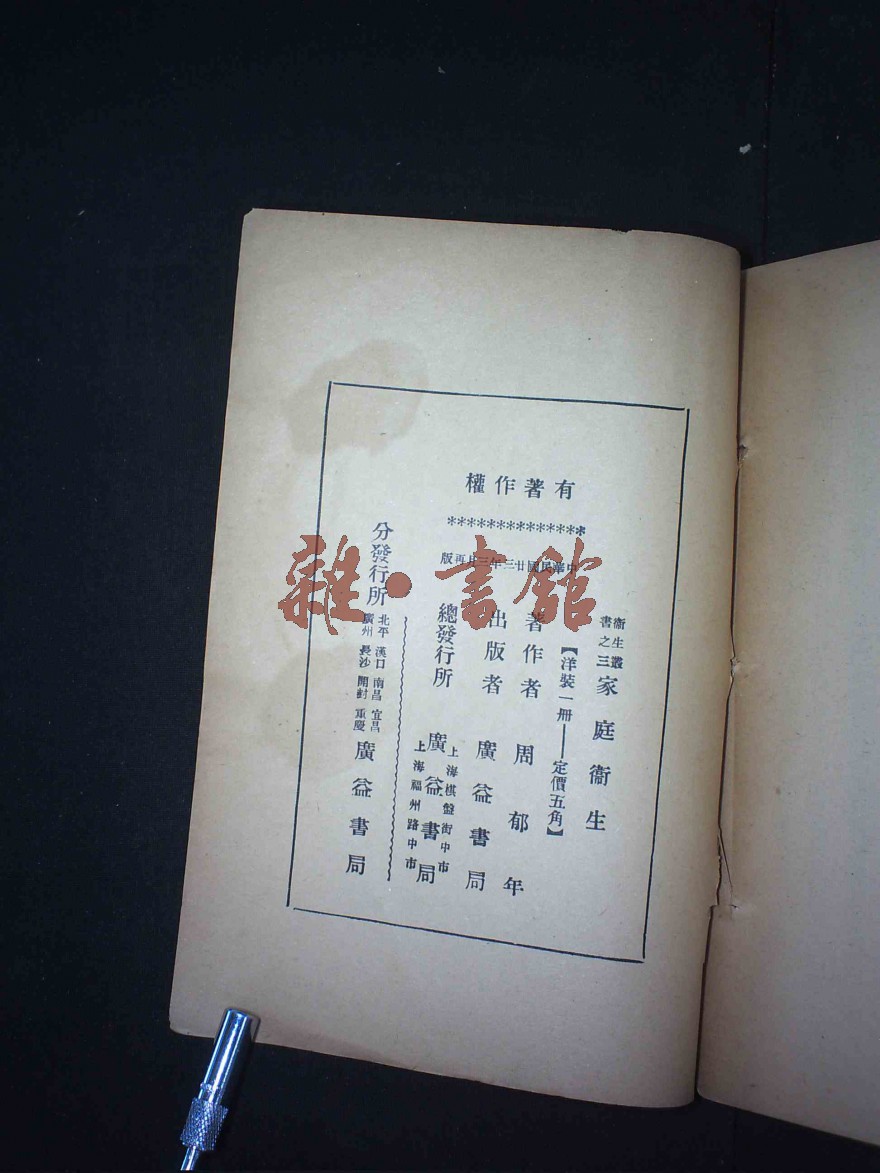 有著作權
*************
中華民國廿三年三月再版
衞生叢書之三
家庭衞生
【洋裝一册——定價五角】
著作者 周郁年
出版者 廣益書局
總發行所 上海棋盤街中市 廣益書局 上海福州路中市
分發行所 北平 漢口 南昌 宜昌 廣州 長沙 開封 重慶 廣益書局
雜·書館